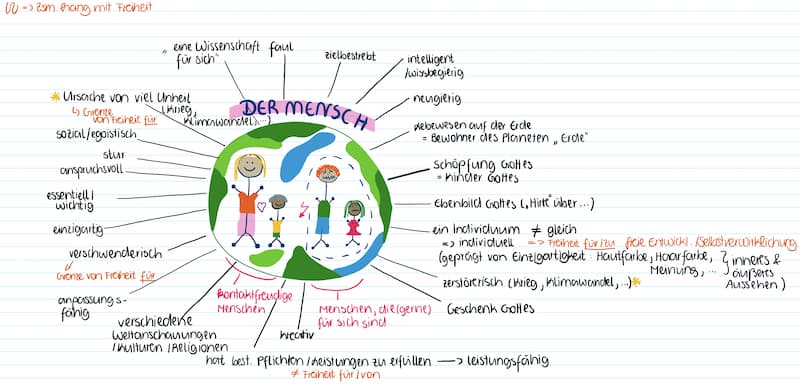 => Zsm hang mit Freiheit
„ eine Wissenschaft
für sich"
faul
zielbestrebt
intelligent
/wissbegierig
neugierig
* Ursache von viel Unheil
(Krieg,
Klimawandel,...)
↳ Grenze
von Freiheit für
DER MENSCH
sozial/egoistisch
stur
anspruchsvoll
essentiell/
wichtig
einzigartig
verschwenderisch
Grenze von Freiheit für
anpassungs-
fähig
Lebewesen auf der Erde
= Bewohner des Planeten „ Erde"
Schöpfung Gottes
= Kinder Gottes
Ebenbild Gottes („Hirte" über ...)
ein Individuum ≠ gleich
=> individuell => Freiheit für/zu freie Entwickl. /Selbstverwirklichung
(geprägt von Einzigartigkeit: Hautfarbe, Haarfarbe,
Meinung, ...
} inneres &
äußeres
Aussehen)
zerstörerisch (Krieg, Klimawandel, ...) *
Geschenk Gottes
kontaktfreudige
Menschen
Menschen, die (gerne)
für sich sind
verschiedene
Weltanschauungen
/Kulturen /Religionen
kreativ
hat best. Pflichten /Leistungen zu erfüllen → leistungsfähig
≠ Freiheit für/von